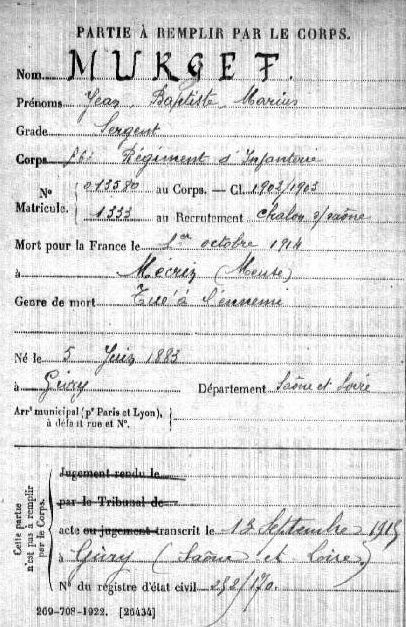 PARTIE À REMPLIR PAR LE CORPS.
Nom MURGET.
Prénoms Jean Baptiste Marius
Grade Sergent
Corps Régiment d'Infanterie
Nº Matricule. 013580 au Corps. — Cl. 1903/1903
1333 au Recrutement Chalon s/Saône
Mort pour la France le 1er octobre 1914
à Mécrin (Meuse)
Genre de mort Tué à l'ennemi
Né le 5 Juin 1883
à Givry Département Saône et Loire
Arrt municipal (pr Paris et Lyon),
à défaut rue et Nº.
Cette partie n'est pas à remplir par le Corps.
Jugement rendu le
par le Tribunal de
acte ou jugement transcrit le 13 Septembre 1915
à Givry (Saône et Loire)
Nº du registre d'état civil 232/170.
269-708-1922. [26434]